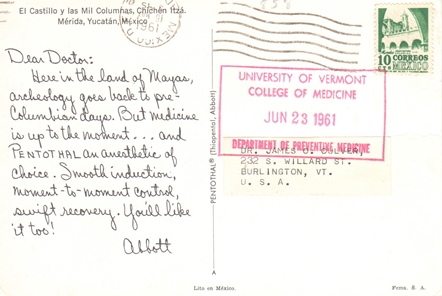 El Castillo y las Mil Columnas, Chichén Itzá.
Mérida, Yucatán, México
Dear Doctor:
Here in the land of Mayas,
archeology goes back to pre-
Columbian days. But medicine
is up to the moment... and
PENTOTHAL an anesthetic of
choice. Smooth induction,
moment-to-moment control,
swift recovery. You'll like
it too!
Abbott
PENTOTHAL® (Thiopental, Abbott)
A
MEXICO
1961
10 CORREOS
CTS MEXICO
UNIVERSITY OF VERMONT
COLLEGE OF MEDICINE
JUN 23 1961
DEPARTMENT OF PREVENTIVE MEDICINE
DR. JAMES
232 S. WILLARD ST.
BURLINGTON, VT.
U. S. A.
Lito en México.
Fema. S. A.